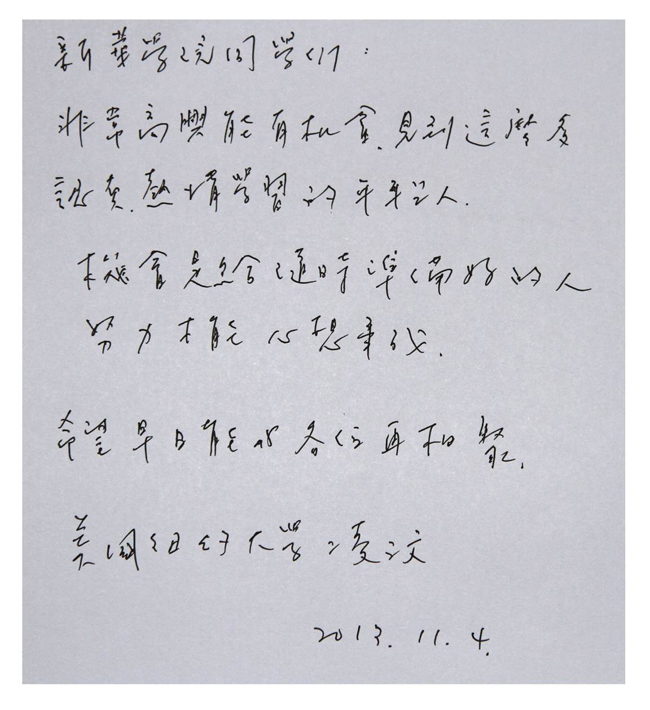 新華學院同學们：
非常高興能有机會見到這麼多
認真、熱情學習的年軽人.
機會是給隨時準備好的人
努力才能心想事成.
希望早日能与各位再相聚.
美國紐約大學 凌文
2013. 11. 4.